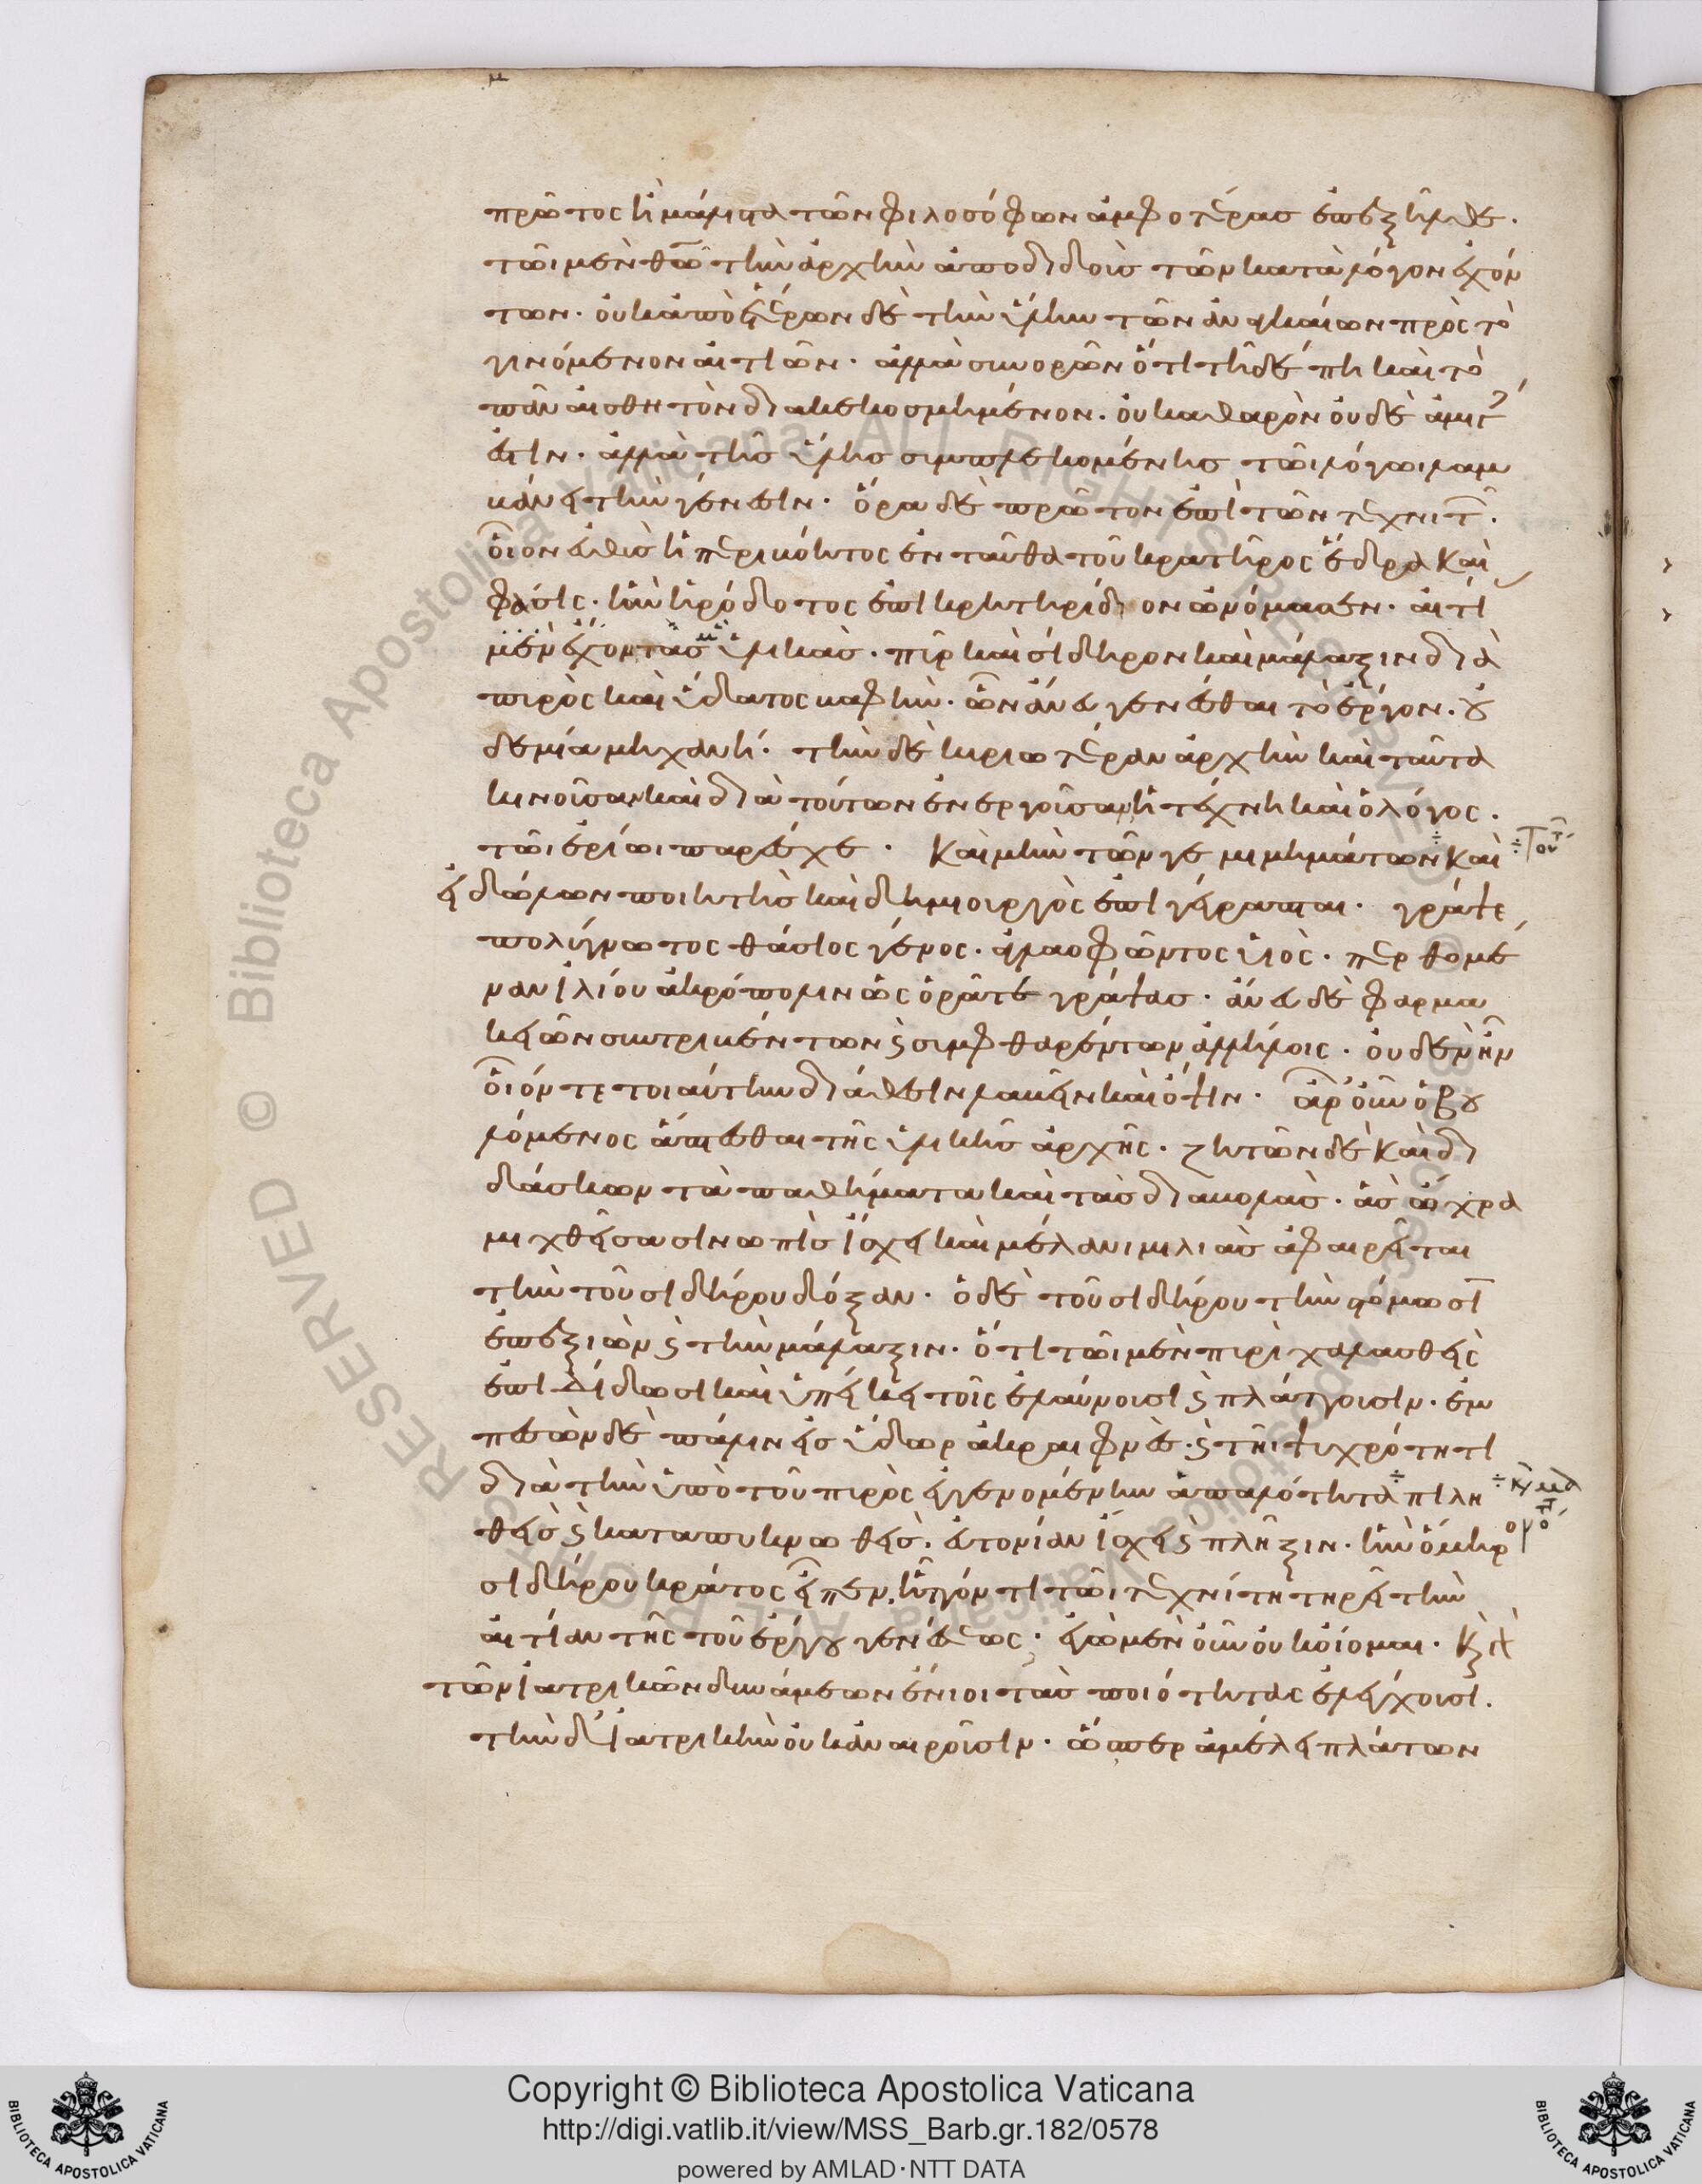 πρῶτος ἢ μάλιστα τῶν φιλοσόφων ἀμφοτέρας ἐπεξῆλθε.
τῶι μὲν θ͞ω τὴν ἀρχὴν ἀποδιδοὺς τῶν κατὰ λόγον ἐχόν
των. οὐκ ἀποστερῶν δὲ τὴν ὕλην τῶν ἀναγκαίων πρὸς τὸ
γινόμενον αἰτιῶν. ἀλλὰ συνορῶν ὅτι τῆδέ πη καὶ τὸ
πᾶν αἰσθητὸν διακεκοσμημένον. οὐ καθαρὸν οὐδὲ ἀμιγ
ἐστιν. ἀλλὰ τῆς ὕλης συμπλεκομένης τῶι λόγωι λαμ
βάνει τὴν γένεσιν. ὅρα δὲ πρῶτον ἐπὶ τῶν τεχνιτ.
οἷον εὐθὺς ἡ περιβόητος ἐνταῦθα τοῦ κρατῆρος ἕδρα καὶ
βάσις. ἣν ἡρόδοτος ὑποκρητηρίδιον ὠνόμασεν. αἰτί
μὲν ἔχοντας ὑλικὰς. πῦρ καὶ σίδηρον καὶ μάλαξιν διὰ
πυρὸς καὶ ὕδατος βαφὴν. ὧν ἄνευ γενέσθαι τὸ ἔργον. οὐ
δεμία μηχανή. τὴν δὲ κυριωτέραν ἀρχὴν καὶ ταῦτα
κινοῦσαν καὶ διὰ τούτων ἐνεργοῦσαν ἡ τέχνη καὶ ὁ λόγος.
τῶι ἔργωι παρέσχε. Καὶ μὴν τῶν γε μιμημάτων καὶ
εἰδώλων ποιητὴς καὶ δημιουργὸς ἐπιγέγραπται. γράψε
πολύγνωτος θάσιος γένος. ἀγλαοφῶντος υἱὸς. περθομέ
ναν ἰλίου ἀκρόπολιν ὡς ὁρᾶτε γράψας. ἄνευ δὲ φαρμά
κων συντριβέντων ϛ συμφθαρέντων ἀλλήλοις. οὐδὲν ἦν
οἷόν τε τοιαύτην διάθεσιν λαβεῖν καὶ ὄψιν. ἆρ' οὖν ὁ βου
λόμενος ἅπτεσθαι τῆς ὑλικῆς ἀρχῆς. ζητῶν δὲ καὶ δι
δάσκων τὰ παθήματα καὶ τὰς μεταβολὰς. ἃς ὤχρα
μιχθεῖσα σινωπὶς ἴσχει καὶ μέλανι μηλιὰς ἀφαιρεῖται
τὴν τοῦ σιδήρου δόξαν. ὁ δὲ τοῦ σιδήρου τὴν στόμωσι
ἐπεξιὼν ϛ τὴν μάλαξιν. ὅτι τῶι μὲν πυρὶ χαλασθεὶς
ἐπιδίδωσι καὶ ὑπείκει τοῖς ἐλαύνουσι ϛ πλάττουσιν. ἐμ
πεσὼν δὲ πάλιν εἰς ὕδωρ ἀκραιφνὲς. ϛ τῆι ψυχρότητι
διὰ τὴν ὑπὸ τοῦ πυρὸς ἐγγενομένην ἁπαλότητα πιλη
θεὶς ϛ καταπυκνωθεὶς. εὐτονίαν ἴσχει ϛ πῆξιν. ἣν ὅμηρ
σιδήρου κράτος εἶπεν. ἧττόν τι τῶι τεχνίτη τηρεῖ τὴν
αἰτίαν τῆς τοῦ ἔργου γενέσεως. ἐγὼ μὲν οὖν οὐκ οἴομαι. Κ
τῶν ἰατρικῶν δυνάμεων ἔνιοι τὰς ποιότητας ἐλέγχουσι.
τὴν δ' ἰατρικὴν οὐκ ἀναιροῦσιν. ὥσπερ ἀμέλει πλάτων